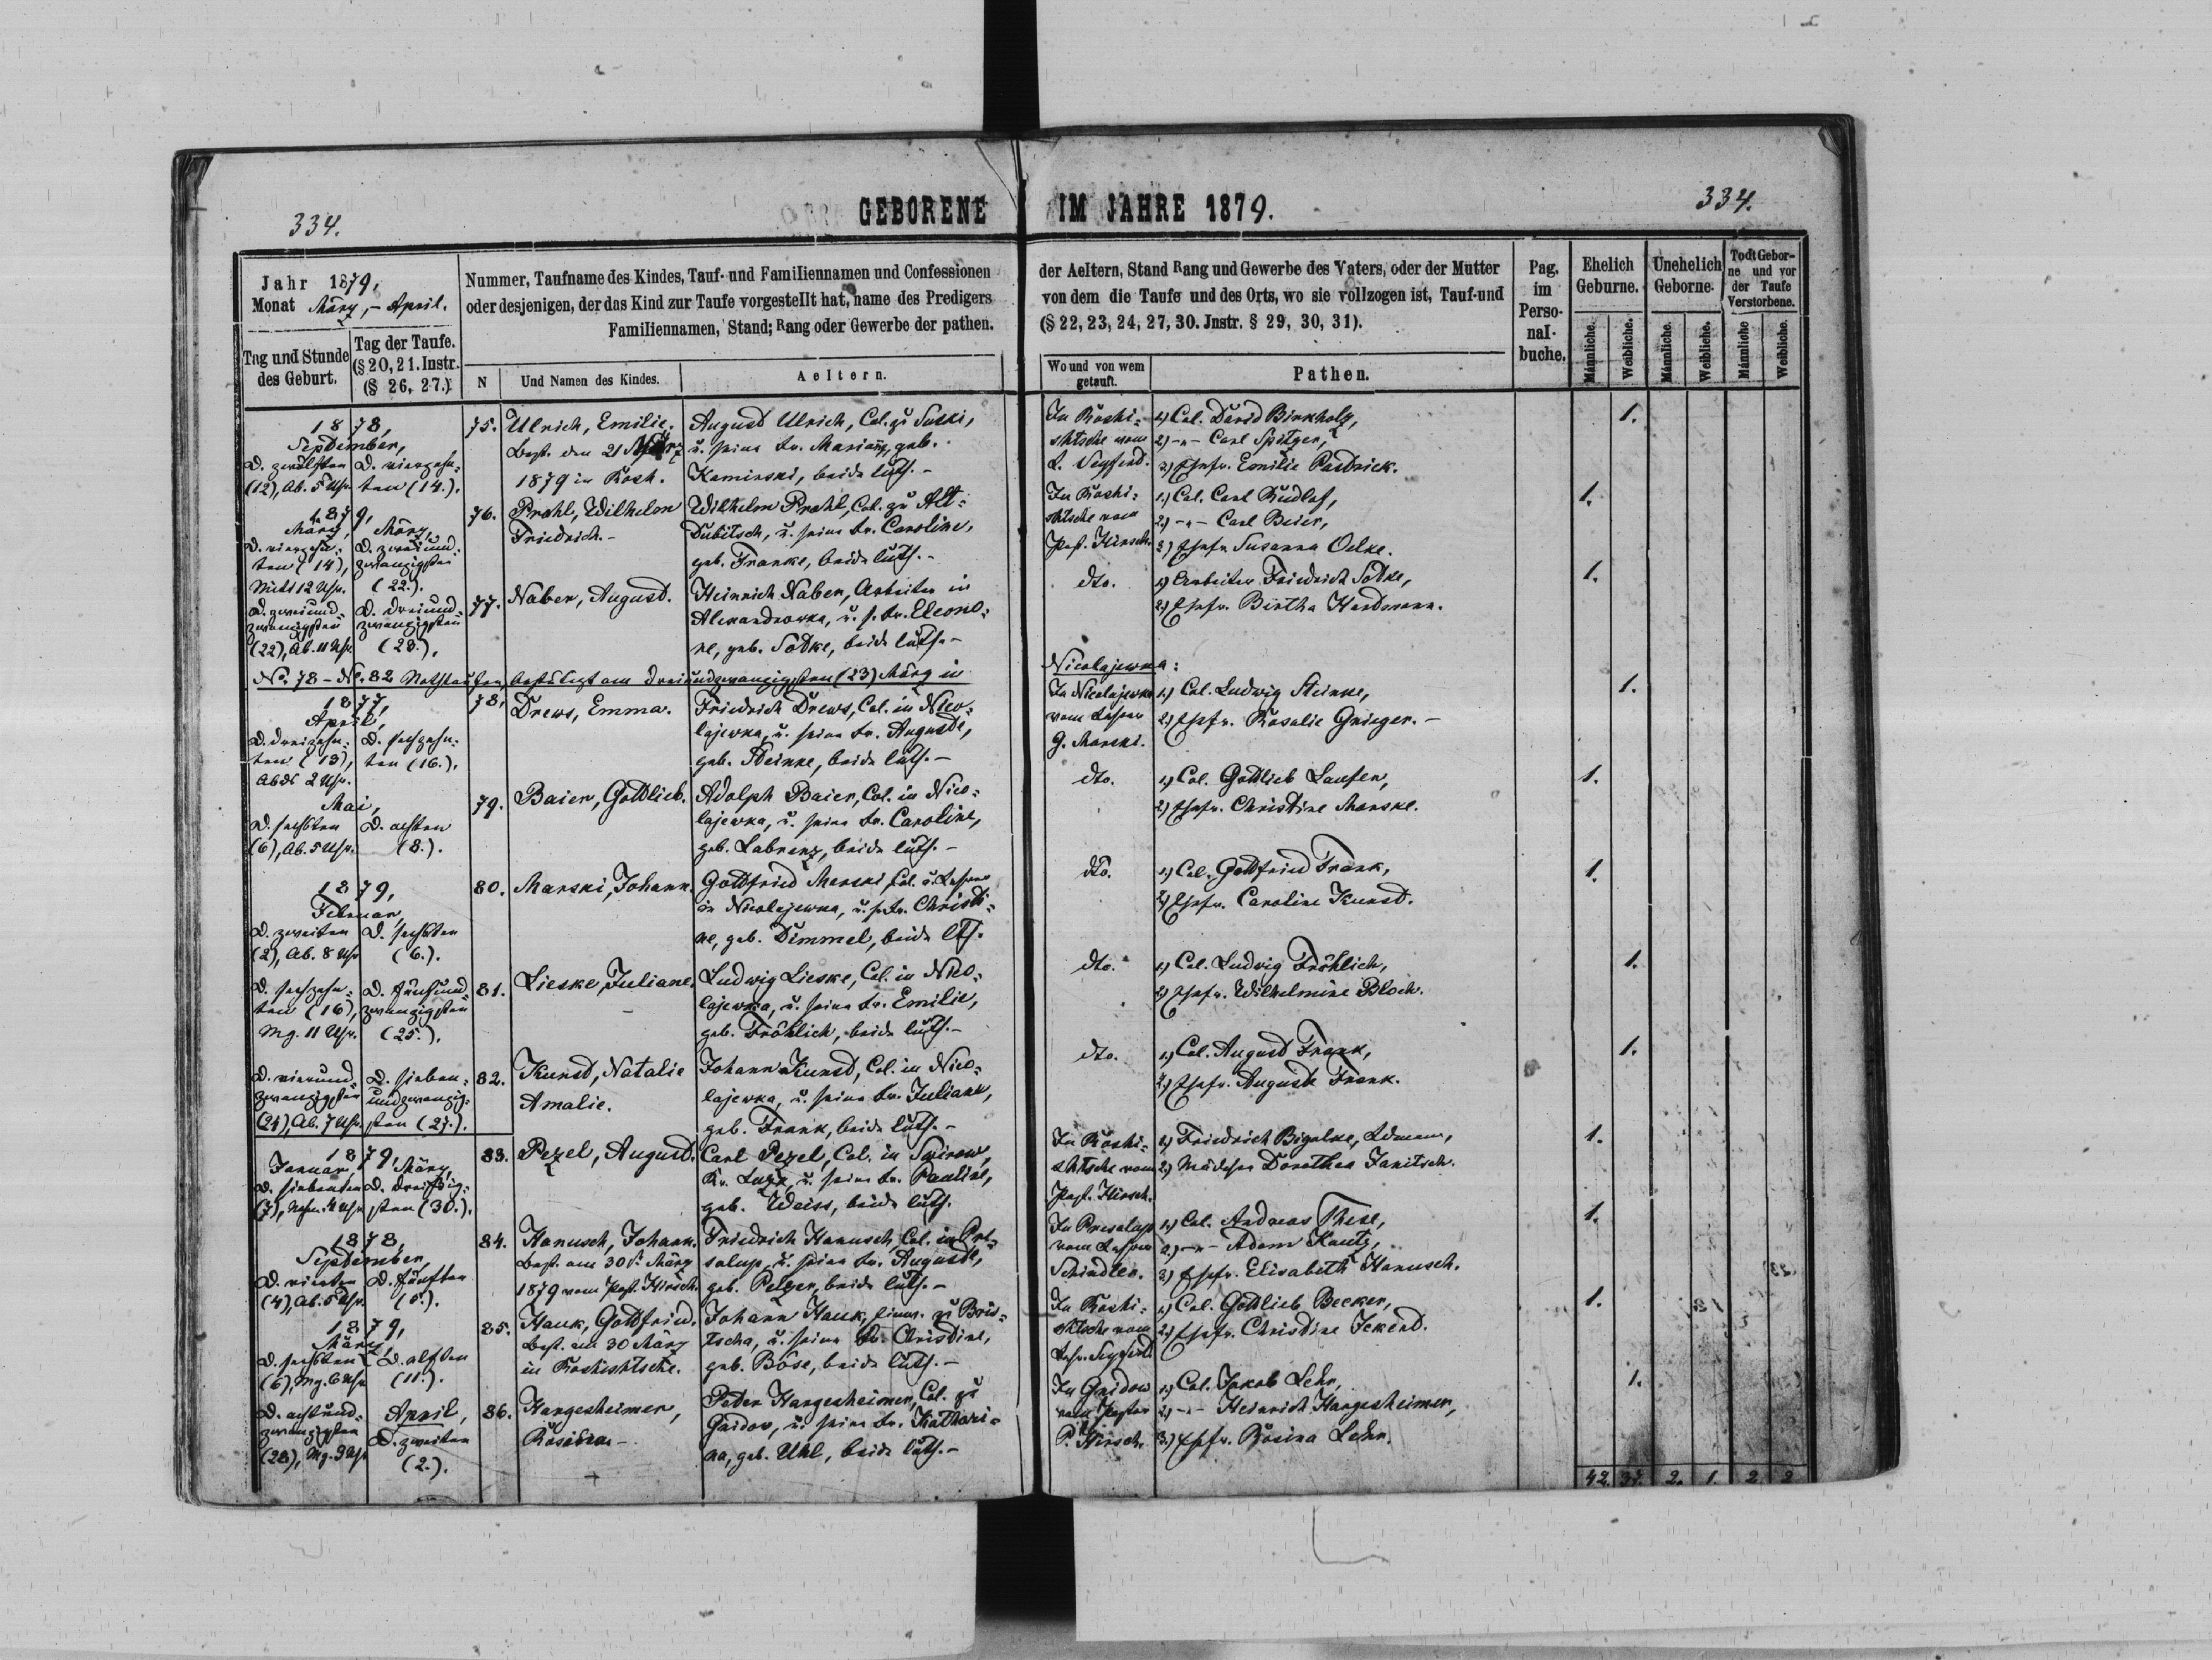 334.
GEBORENE IM JAHRE 1879.
334.
Jahr 1879,
Monat März, - April.
Tag und Stunde
des Geburt.
Tag der Taufe.
(§ 20, 21. Instr.
(§ 26, 27.)
Nummer, Taufname des Kindes, Tauf- und Familiennamen und Confessionen
oder desjenigen, der das Kind zur Taufe vorgestellt hat, name des Predigers
Familiennamen, Stand; Rang oder Gewerbe der pathen.
N
Und Namen des Kindes.
Aeltern.
der Aeltern, Stand Rang und Gewerbe des Vaters, oder der Mutter
von dem die Taufe und des Orts, wo sie vollzogen ist, Tauf-und
(§ 22, 23, 24, 27, 30. Jnstr. § 29, 30, 31).
Wo und von wem
getauft.
Pathen.
Pag.
im
Perso-
nal-
buche.
Ehelich
Geburne.
Unehelich
Geborne.
Todt Gebor-
ne und vor
der Taufe
Verstorbene.
Männliche.
Weibliche.
Männliche.
Weibliche.
Männliche
Weibliche.
1878,
September,
D. zwölften
(12), Ab. 5 Uhr.
D. vierzehn-
ten (14.).
75.
Ulrich, Emilie.
Best. den 21 März
1879 in Rosh.
August Ulrich, Col. zu Suski,
u. seine Fr. Mariann, geb.
Kaminski, beide luth. -
In Roshi-
shtsche vom
L. Seyferd.
1.) Col. David Birkholz,
2) -"- Carl Spitzer,
3) Ehefr. Emilie Pastrick.
1.
1879,
März,
D. vierzehn-
ten (14),
Mitt 12 Uhr.
März,
D. zweiund-
zwanzigsten
(22.).
76.
Prohl, Wilhelm
Friedrich. -
Wilhelm Prohl, Col. zu Alt-
Dubitsch, u. seine Fr. Caroline,
geb. Franke, beide luth. -
In Roshi-
shtsche vom
Past. Hirsch.
1.) Col. Carl Rudlof,
2) -"- Carl Beier,
3) Ehefr. Susanna Oelke.
1.
D. zweiund-
zwanzigsten
(22), Ab. 11 Uhr.
D. dreiund-
zwanzigsten
(23.).
77.
Naber, August.
Heinrich Naber, Arbeiter in
Alexandrowka, u. s. Fr. Eleono-
re, geb. Sodke, beide luth. -
dto.
1) Arbeiter Friedrich Sodke,
2) Ehefr. Bertha Herdmann.
1.
No. 78 - No. 82 Nothtaufen, bestätigt am dreiundzwanzigsten (23) März in
Nicolajewka:
1877,
April,
D. dreizehn-
ten (13),
Abds 2 Uhr.
D. sechzehn-
ten (16.).
78.
Drews, Emma.
Friedrich Drews, Col. in Nico-
lajewka, u. seine Fr. Auguste,
geb. Steinke, beide luth. -
In Nicolajewka
vom Lehrer
G. Marski.
1.) Col. Ludwig Steinke,
2) Ehefr. Rosalie Grieger. -
1.
Mai,
D. sechsten
(6), Ab. 5 Uhr.
D. achten
(8.).
79.
Baier, Gottlieb.
Adolph Baier, Col. in Nico-
lajewka, u. seine Fr. Caroline,
geb. Labrenz, beide luth. -
dto.
1.) Col. Gottlieb Laufer,
2) Ehefr. Christine Marske.
1.
1879,
Februar,
D. zweiten
(2), Ab. 8 Uhr
D. sechsten
(6.).
80.
Marski, Johann.
Gottfried Marski, Col. u. Lehrer
in Nicolajewka, u. s. Fr. Christi-
ne, geb. Dimmel, beide lth.
dto.
1) Col. Gottfried Frank,
2) Ehefr. Caroline Kunst.
1.
D. sechzehn-
ten (16),
Mg. 11 Uhr.
D. fünfund-
zwanzigsten
(25.).
81.
Lieske, Juliane.
Ludwig Lieske, Col. in Nico-
lajewka, u. seine Fr. Emilie,
geb. Fröhlich, beide luth. -
dto.
1.) Col. Ludwig Fröhlich,
2) Ehefr. Wilhelmine Bloch.
1.
D. vierund-
zwanzigsten
(24), Ab. 7 Uhr.
D. sieben-
undzwanzig-
sten (27.).
82.
Kunst, Natalie
Amalie.
Johann Kunst, Col. in Nico-
lajewka, u. seine Fr. Juliane,
geb. Frank, beide luth. -
dto.
1.) Col. August Frank,
2) Ehefr. Auguste Frank.
1.
1879,
Januar,
D. siebenten
(7), Nchm. 4 Uhr
März,
D. dreißig-
sten (30.).
83.
Pezel, August.
Carl Pezel, Col. in Swirow,
Kr. Luzk, u. seine Fr. Pauline,
geb. Weiss, beide luth.
In Roshi-
shtsche vom
Past. Hirsch.
1) Friedrich Bigalke,
2) Mädchen Dorothea Janitsch.
1.
1878,
September,
D. vierten
(4), Ab. 5 Uhr.
D. fünften
(5.).
84.
Hanusch, Johann.
Best. am 30t. März
1879 vom Past. Hirsch.
Friedrich Hanusch, Col. in Pre-
salup, u. seine Fr. Auguste,
geb. Pelzer, beide luth. -
In Presalup
vom Lehrer
Schindler.
1.) Col. Andreas These,
2.) -"- Adam Kautz,
3) Ehefr. Elisabeth Hanusch.
1.
1879,
März,
D. sechsten
(6), Mg. 6 Uhr
D. elften
(11.).
85.
Hauk, Gottfried.
Best. am 30 März
in Roshishtsche.
Johann Hauk, zu Bris-
tscha, u. seine Fr. Christine,
geb. Böse, beide luth. -
In Roshi-
shtsche vom
Lehr. Seyferd.
1) Col. Gottlieb Becker,
2) Ehefr. Christine Ickerd.
1.
D. achtund-
zwanzigsten
(28), Mg. 3 Uhr
April,
D. zweiten
(2.).
86.
Hangesheimer,
Rosina -
Peter Hangesheimer, Col. zu
Gnidow, u. seine Fr. Kathari-
na, geb. Uhl, beide luth. -
In Gnidow
vom Pastor
P. Hirsch.
1) Col. Jakob Lehr,
2) -"- Heinrich Hangesheimer,
3) Ehefr. Rosina Lehr.
1.
42. 37. 2. 1. 2. 2